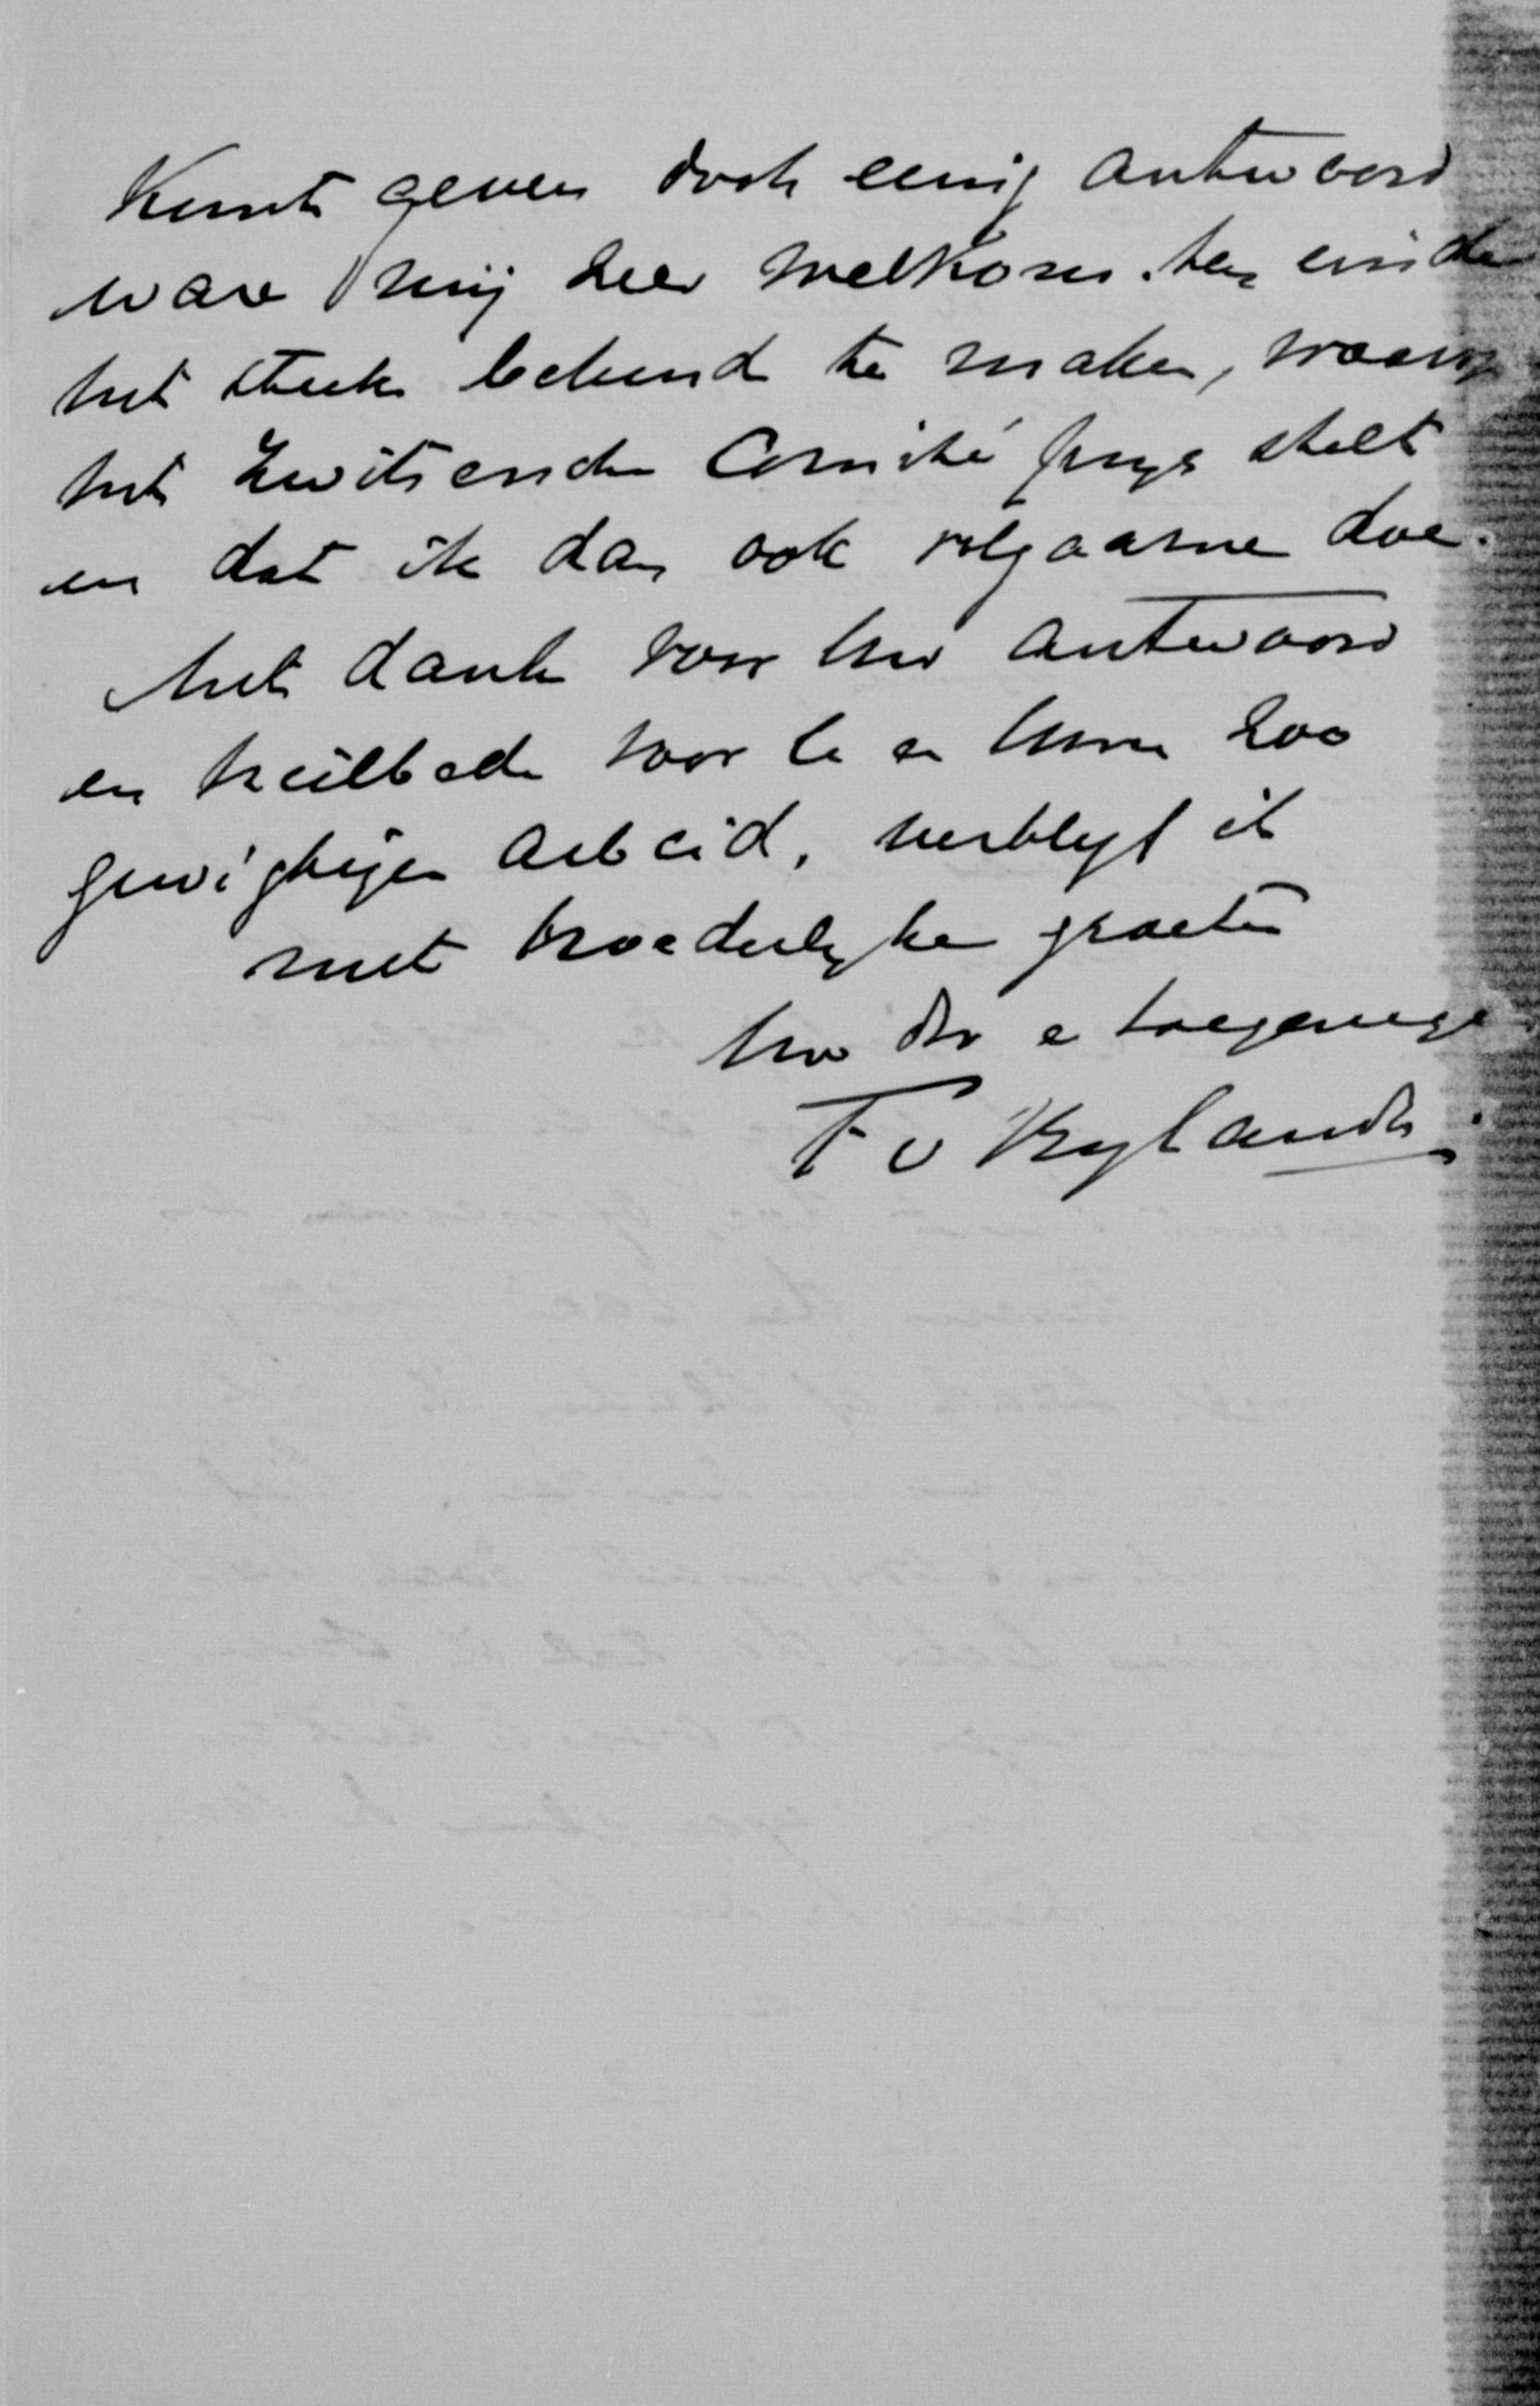 kunt geven doch eenig antwoord
ware mij zeer welkom. ten einde
het stuk bekend te maken, waarop
het Zwitsersche Comité prijs stelt
en dat ik dan ook volgaarne doe.
Met dank voor Uw antwoord
en heilbede voor U en Uwen zoo
gewigtigen arbeid, verblijf ik
met broederlyke groeten
Uw dw e toegenegen
F v